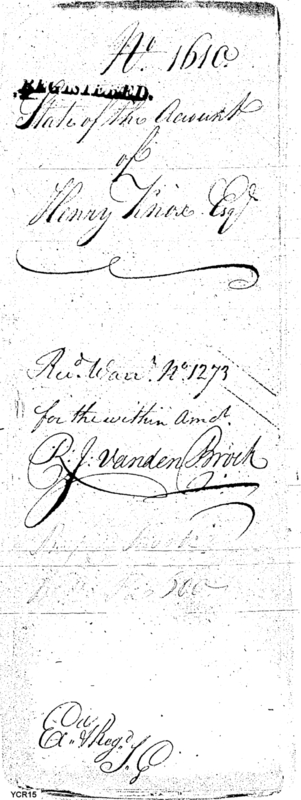 No. 1610.
REGISTERED.
State of the Account
of
Henry Knox Esqr.
Recd. Warrt. No. 1273
for the within Amot.
R. J. Vanden Broek
Exd. & Regd.
J. G
YCR15